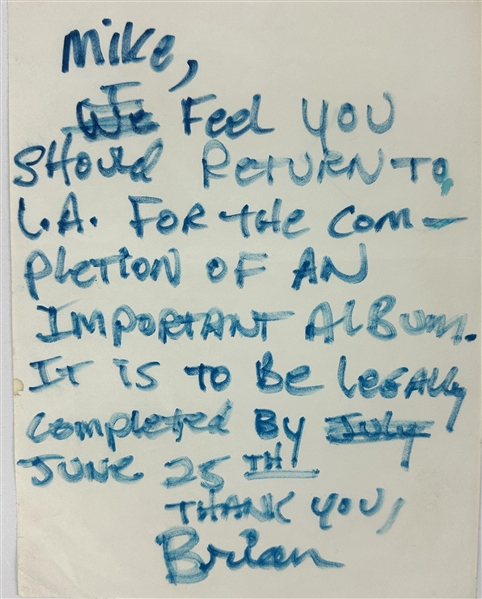 Mike,
I
We Feel you
Should Return to
L.A. For the com-
pletion of an
Important Album.
It is to be legally
completed by July
June 25 th
Thank you,
Brian